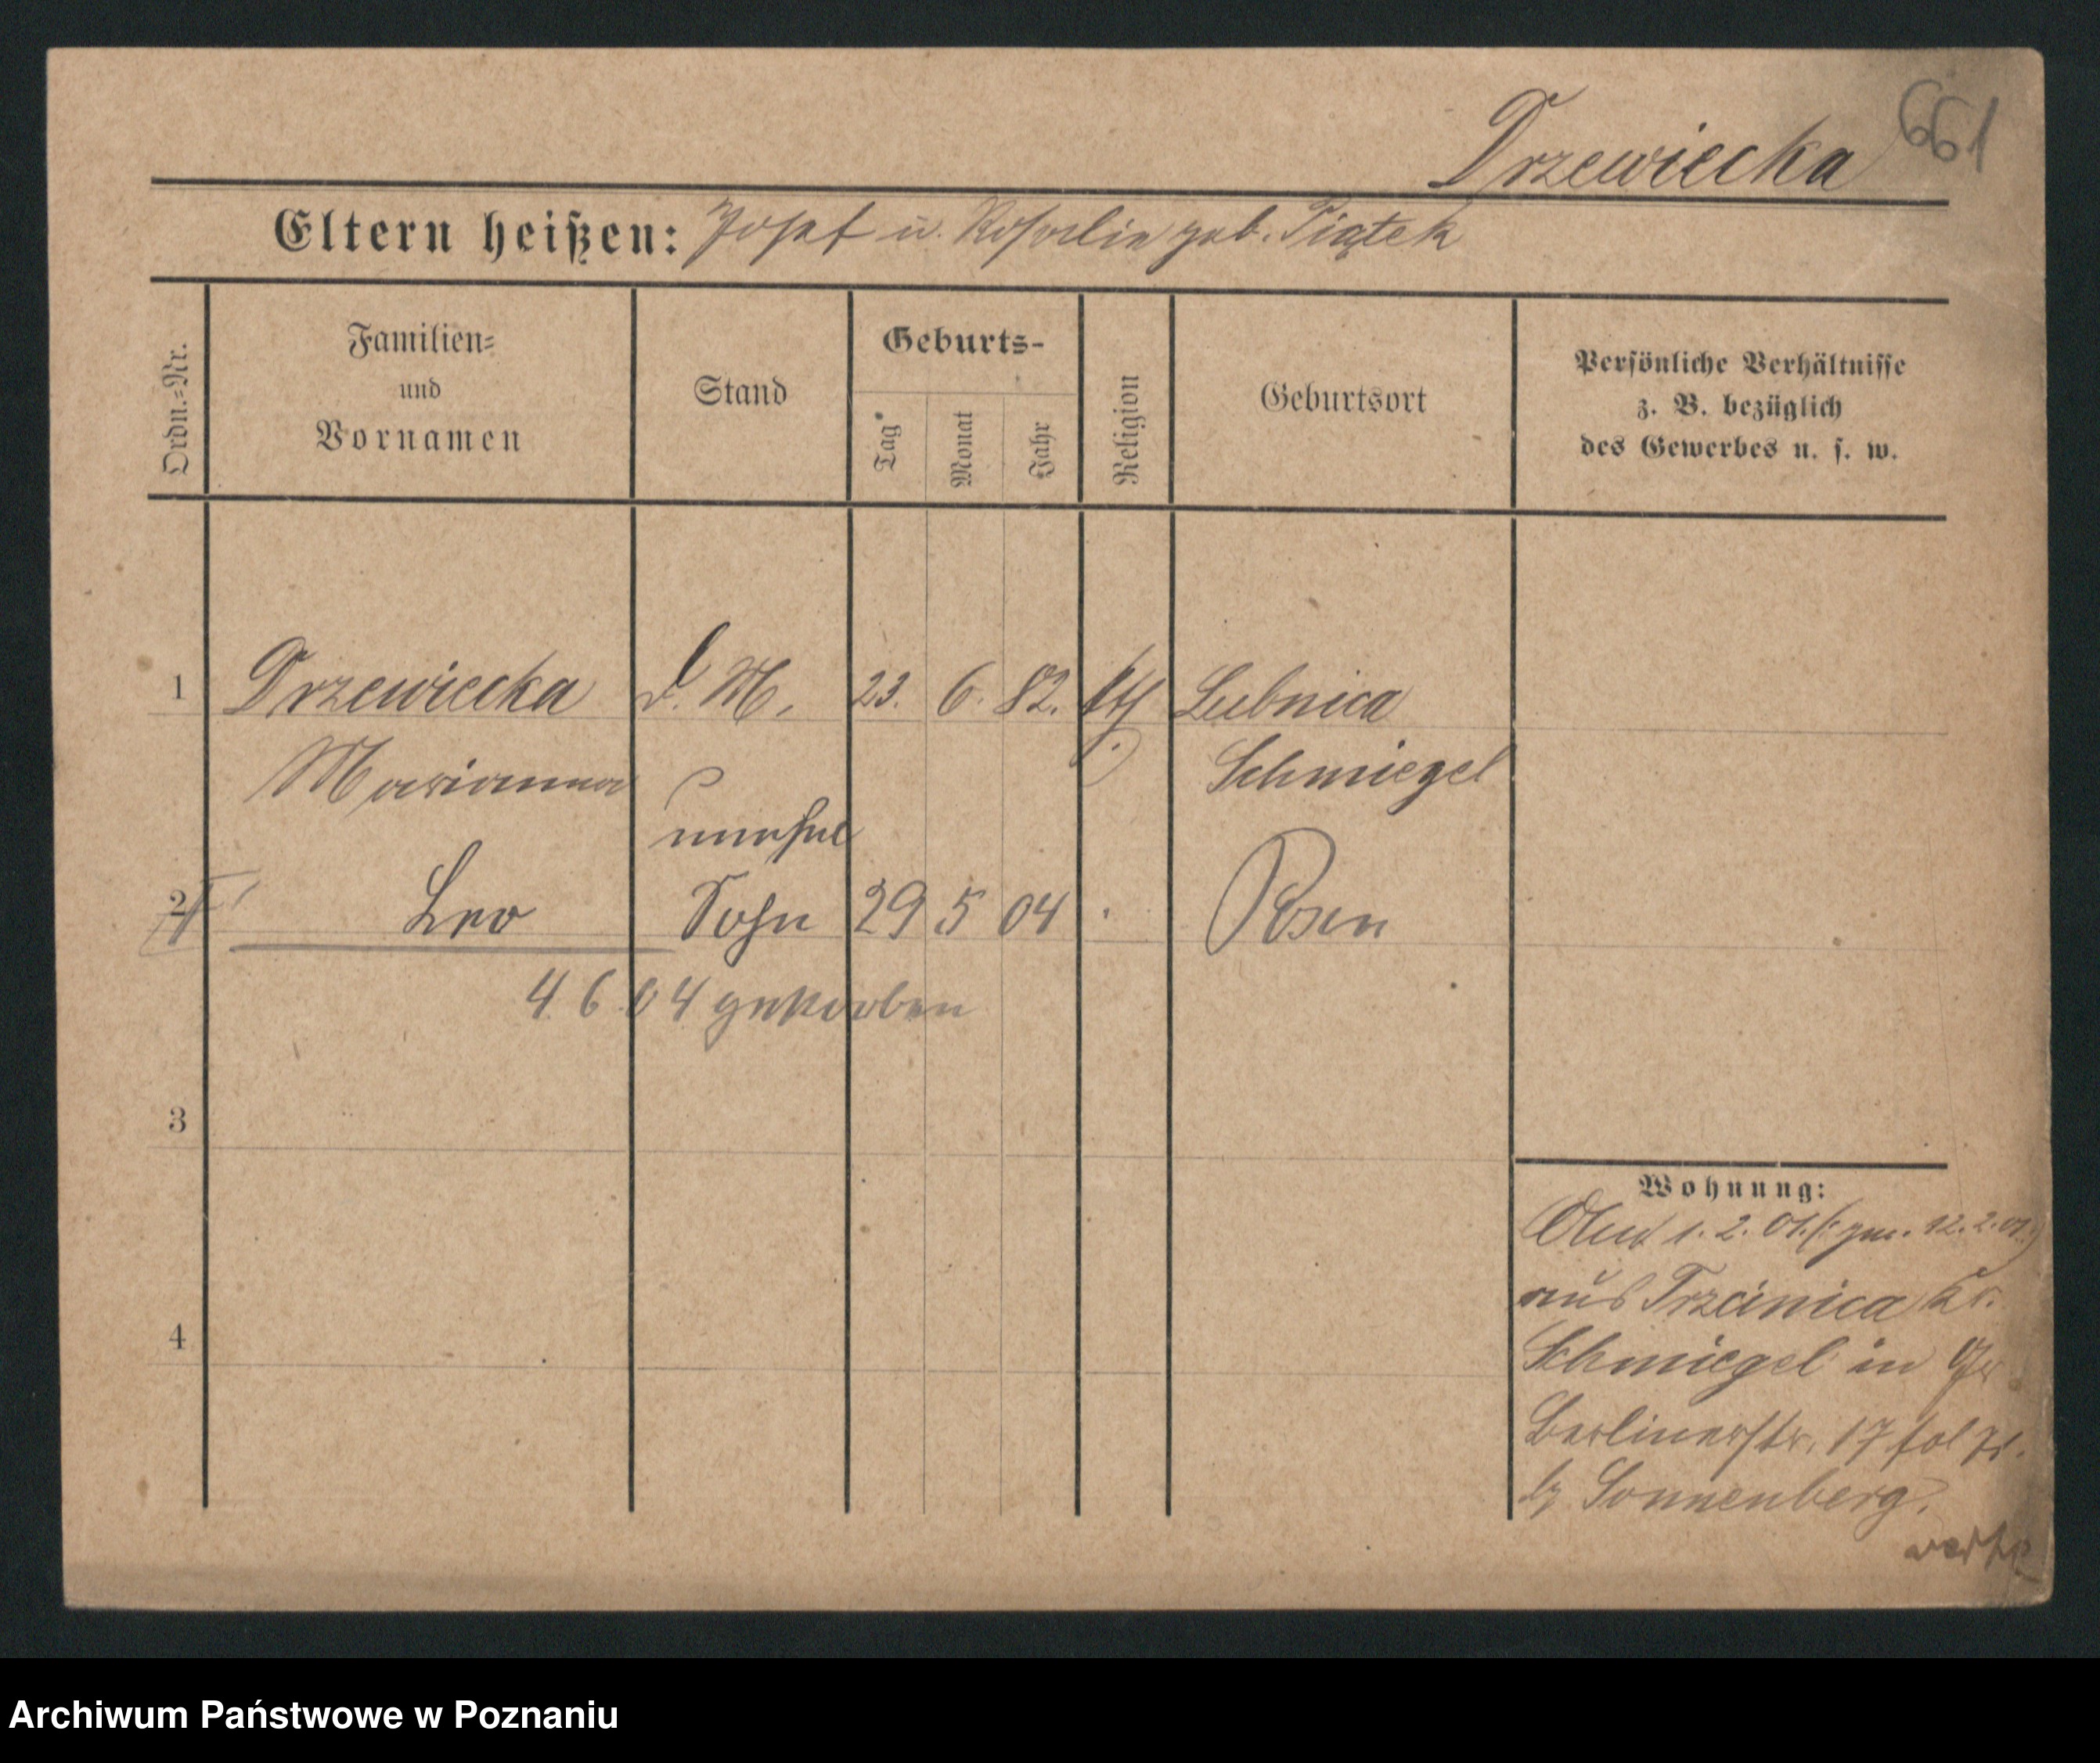 661
Drzewiecka
Eltern heißen: Josef u. Rosalie geb. Piątek
Ordn.-Nr.
Familien-
und
Vornamen
Stand
Geburts-
Tag
Monat
Jahr
Religion
Geburtsort
Persönliche Verhältnisse
z. B. bezüglich
des Gewerbes u. s. w.
1 Drzewiecka d. M. 23. 6. 82. kth Lubnica
Marianna Schmiegel
unehel
2 Leo Sohn 29 5 04 Posen
4 6 04 gestorben
3
4
Wohnung:
1. 2. 01. 12. 2. 01.
aus Trzcinica Kr.
Schmiegel in
Berlinerstr. 17
b. Sonnenberg.